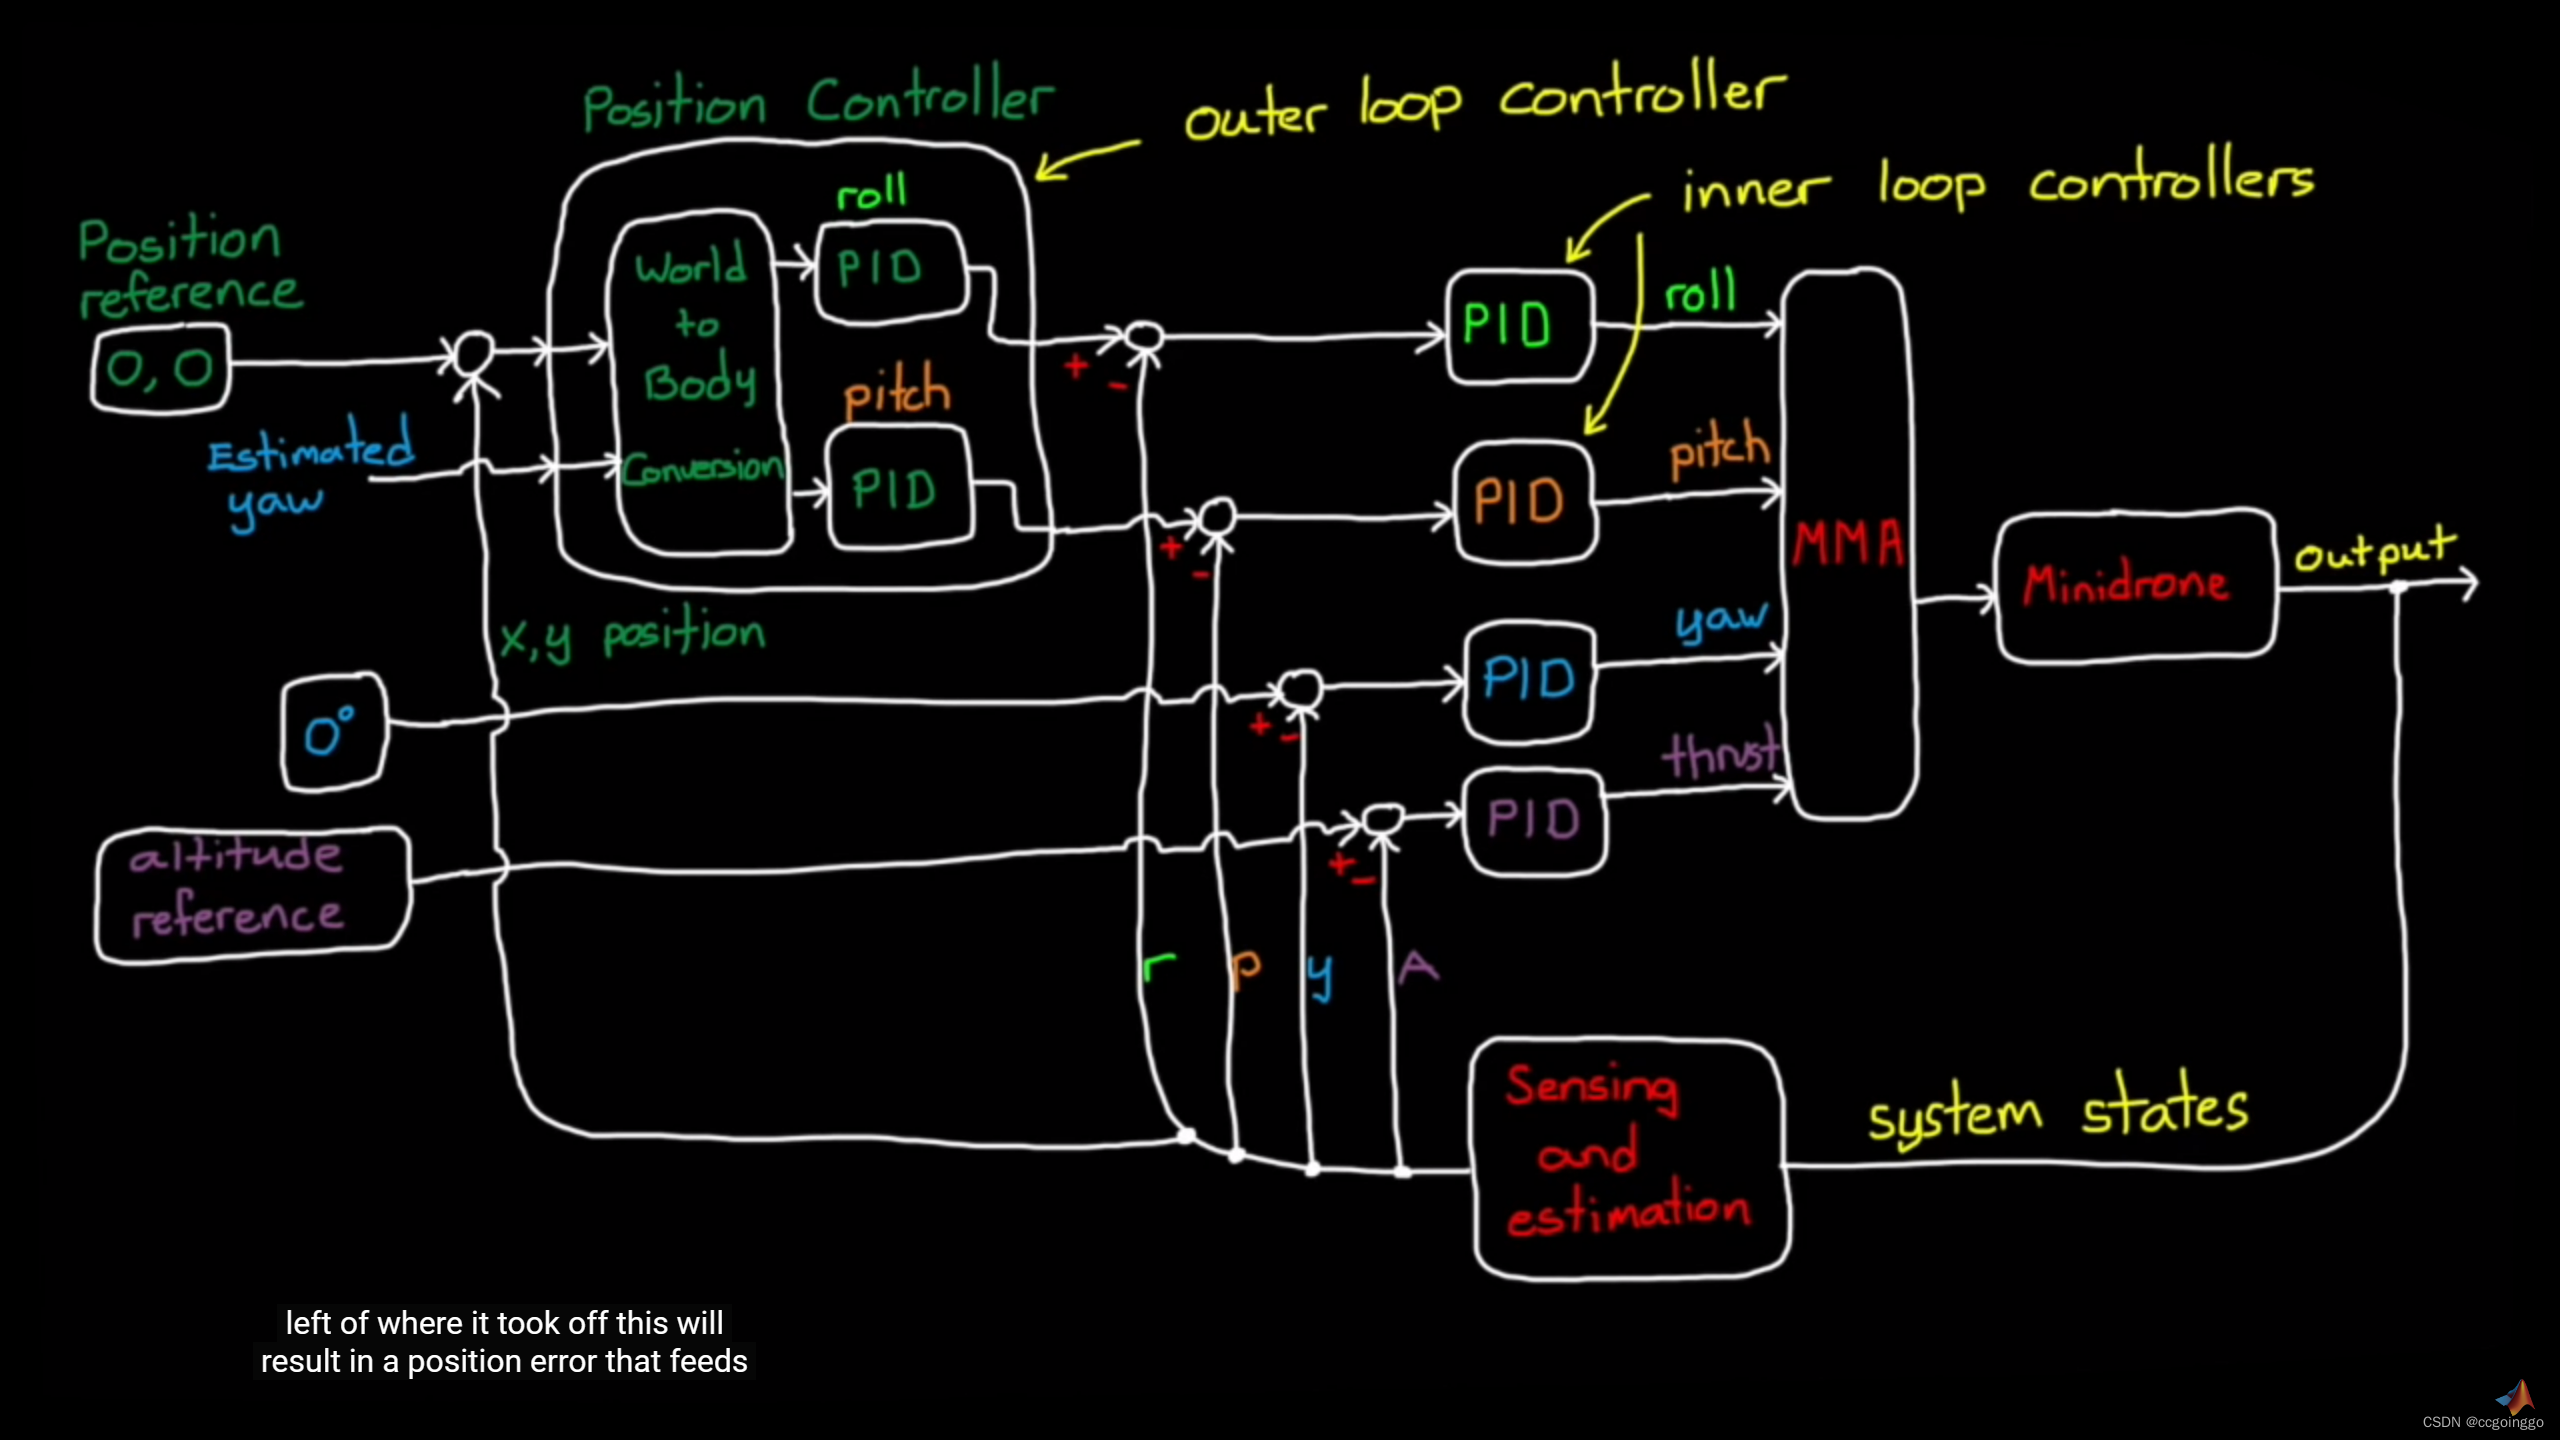 Position Controller
outer loop controller
inner loop controllers
roll
Position
reference
World
to
Body
Conversion
PID
PID
roll
0, 0
pitch
Estimated
yaw
PID
PID
pitch
MMA
output
Minidrone
x, y position
yaw
PID
0°
thrust
PID
altitude
reference
+
-
+
-
+
-
+
-
r
p
y
A
Sensing
and
estimation
system states
left of where it took off this will
result in a position error that feeds
CSDN @ccgoinggo